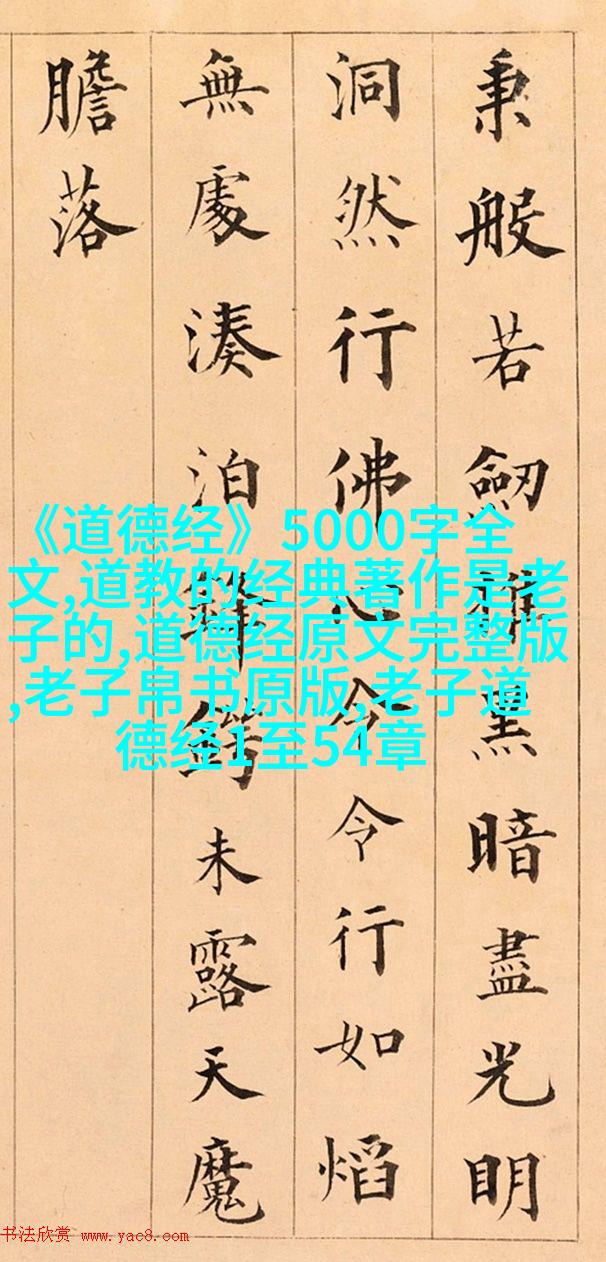 秉般若劒黑暗盡光明
洞然行佛心令令行如熖
無處湊泊鋒鍔未露天魔
膽落
《道德经》5000字全
文,道教的经典著作是老
子的,道德经原文完整版
,老子帛书原版,老子道
德经1至54章
书法欣赏 www.yac8.com